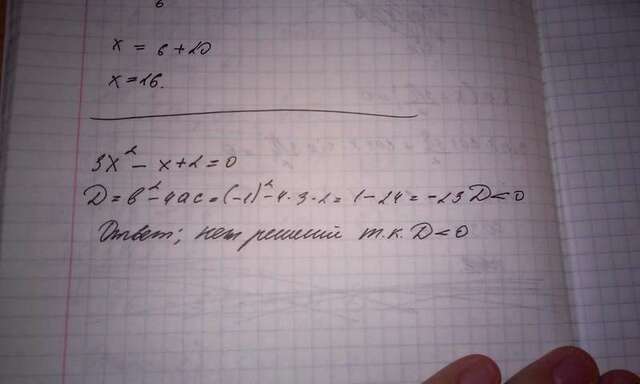 6
x = 6 + 20
x = 26.
3x² - x + 2 = 0
D = в² - 4ac = (-1)² - 4 · 3 · 2 = 1 - 24 = -23 D < 0
Ответ; нет решений т.к. D < 0